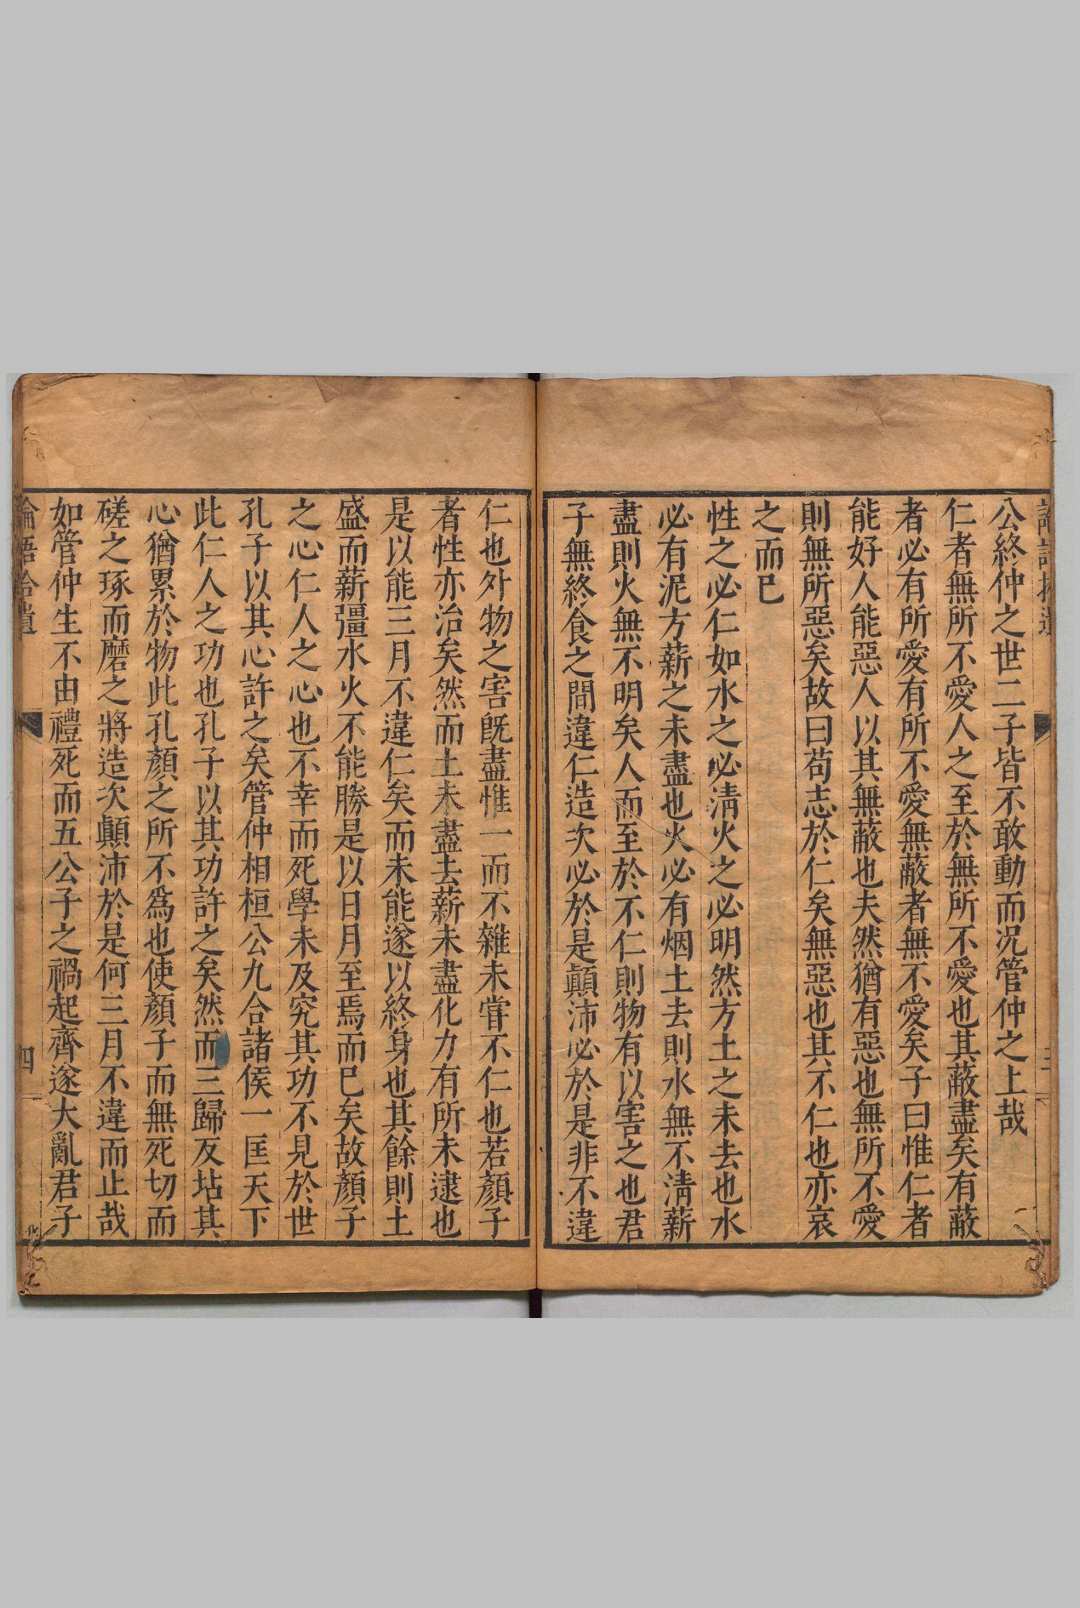 論語拾遺
公終仲之世二子皆不敢動而況管仲之上哉
仁者無所不愛人之至於無所不愛也其蔽盡矣有蔽
者必有所愛有所不愛無蔽者無不愛矣子曰惟仁者
能好人能惡人以其無蔽也夫然猶有惡也無所不愛
則無所惡矣故曰苟志於仁矣無惡也其不仁也亦哀
之而已
性之必仁如水之必淸火之必明然方土之未去也水
必有泥方薪之未盡也火必有烟土去則水無不淸薪
盡則火無不明矣人而至於不仁則物有以害之也君
子無終食之間違仁造次必於是顚沛必於是非不違
仁也外物之害旣盡惟一而不雜未嘗不仁也若顏子
者性亦治矣然而土未盡去薪未盡化力有所未逮也
是以能三月不違仁矣而未能遂以終身也其餘則土
盛而薪彊水火不能勝是以日月至焉而已矣故顏子
之心仁人之心也不幸而死學未及究其功不見於世
孔子以其心許之矣管仲相桓公九合諸侯一匡天下
此仁人之功也孔子以其功許之矣然而三歸反坫其
心猶累於物此孔顏之所不爲也使顏子而無死切而
磋之琢而磨之將造次顚沛於是何三月不違而止哉
如管仲生不由禮死而五公子之禍起齊遂大亂君子
論語拾遺
四